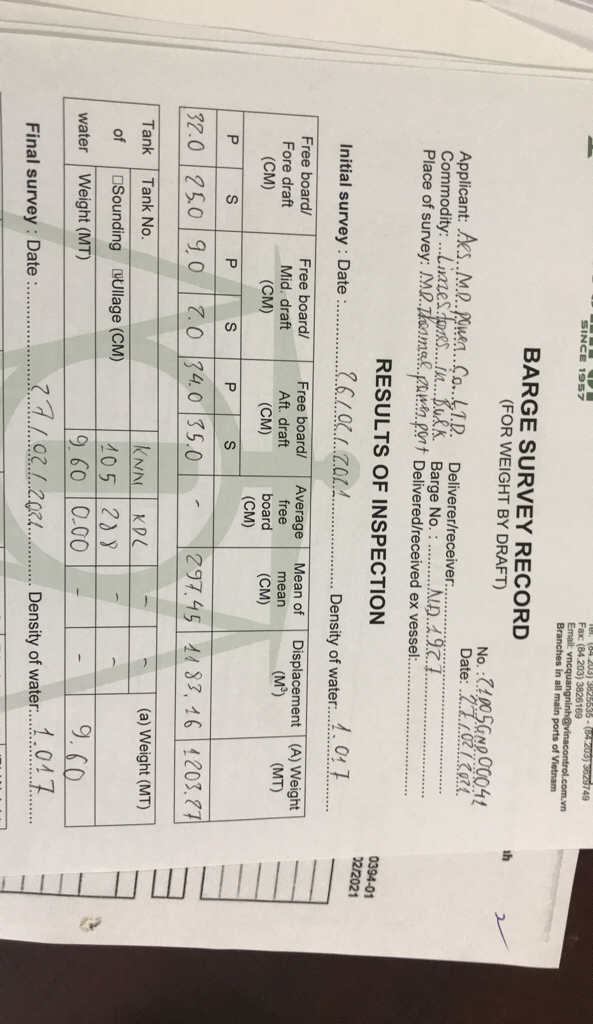 SINCE 1957
Tel: (84.203) 3825535 - (84.203) 3829749
Fax: (84.203) 3826169
Email: vncquangninh@vinacontrol.com.vn
Branches in all main ports of Vietnam
BARGE SURVEY RECORD
(FOR WEIGHT BY DRAFT)
No.:
Date: 27/02/2021
Applicant: Aes MD power Co LTD. Deliverer/receiver:
Commodity: Limestones in Bulk Barge No. : ND 1927
Place of survey: MD Thermal power port Delivered/received ex vessel:
RESULTS OF INSPECTION
Initial survey : Date : 26/02/2021 Density of water: 1.017
Free board/ Fore draft (CM) Free board/ Mid. draft (CM) Free board/ Aft. draft (CM) Average free board (CM) Mean of mean (CM) Displacement (M³) (A) Weight (MT)
P S P S P S
32.0 25.0 9.0 2.0 34.0 35.0 - 297.45 1183.16 1203.27
Tank of water Tank No. KNM KDL - - (a) Weight (MT)
□Sounding ☑Ullage (CM) 105 288 - -
Weight (MT) 9.60 0.00 - - 9.60
Final survey : Date : 27/02/2021 Density of water: 1.017
0394-01
02/2021
2